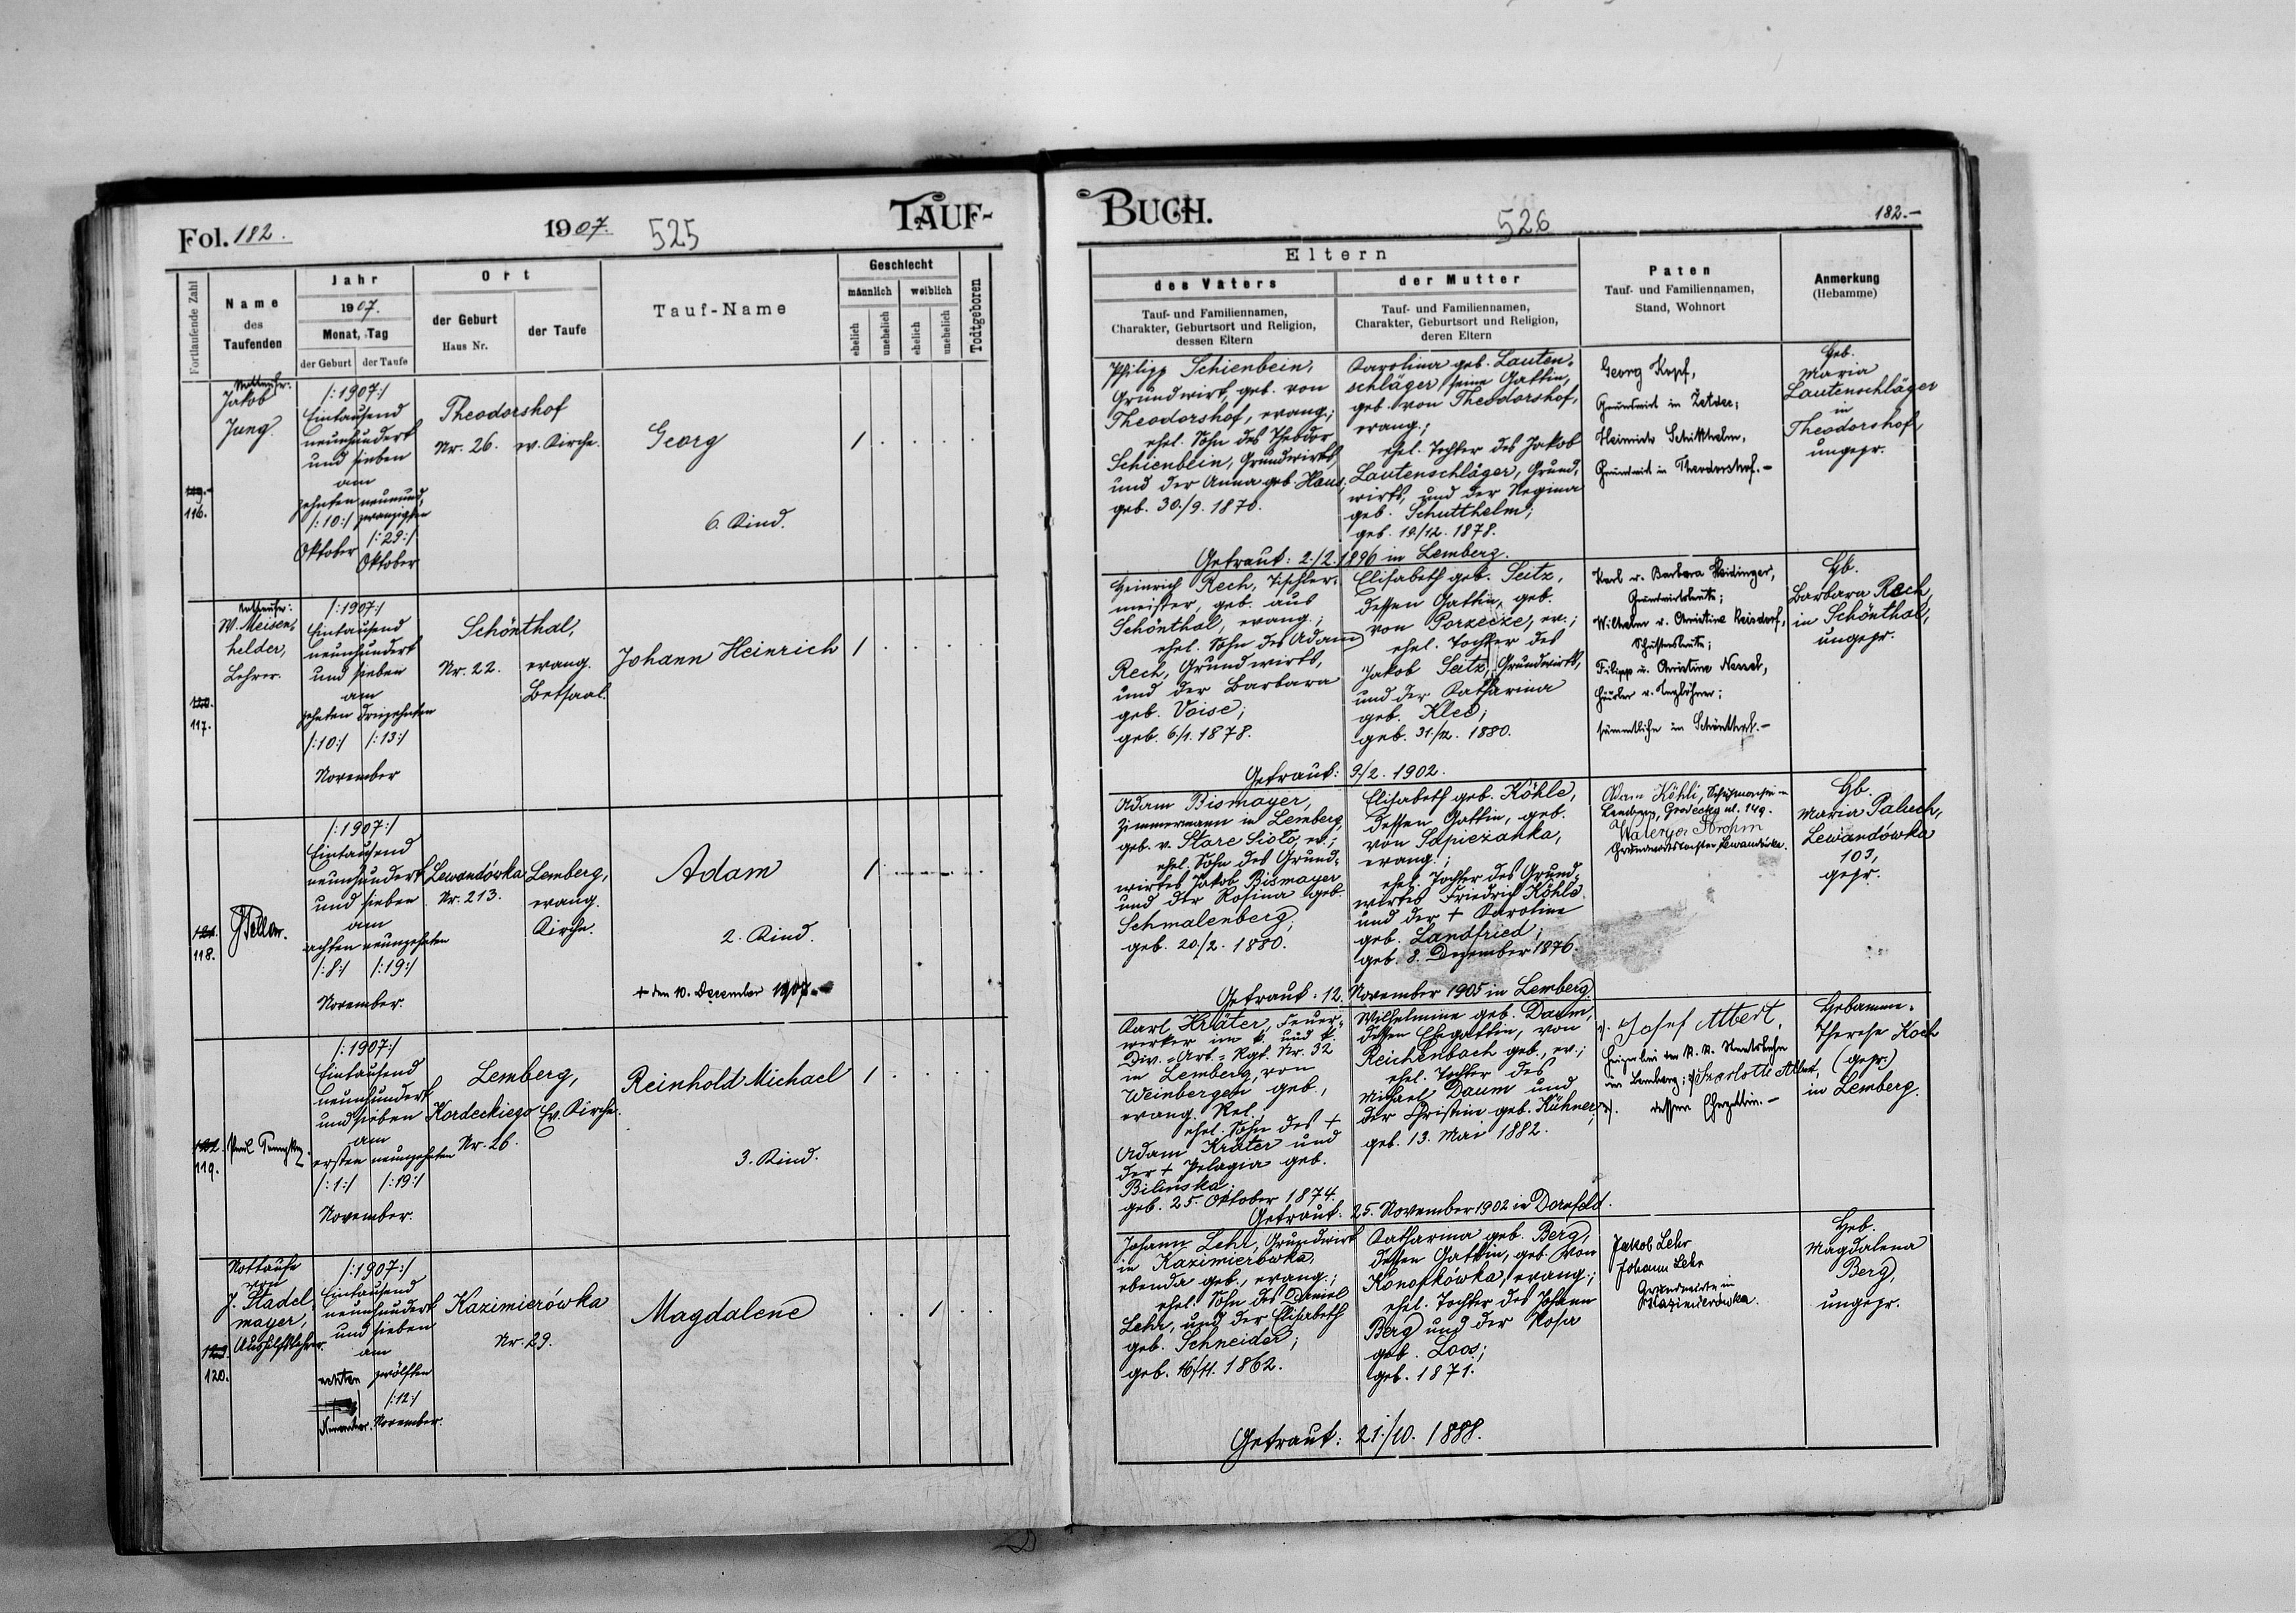 Fol. 182.
1907.
525
TAUF-
Fortlaufende Zahl
Name
des
Taufenden
Jahr
1907.
Monat, Tag
der Geburt
der Taufe
Ort
der Geburt
Haus Nr.
der Taufe
Tauf-Name
Geschlecht
männlich
weiblich
ehelich
unehelich
ehelich
unehelich
Todtgeboren
119.
116.
Jakob
Jung.
/:1907:/
Eintausend
neunhundert
und sieben
am
zehnten neunund,
/:10:/ zwanzigsten
Oktober /:29:/
Oktober
Theodorshof
Nr. 26. ev. Kirche.
Georg
6. Kind.
120.
117.
W. Meisen,
helder,
Lehrer.
/:1907:/
Eintausend
neunhundert
und sieben
am
zehnten dreizehnten
/:10:/ /:13:/
November
Schönthal,
Nr. 22.
evang.
Betsaal.
Johann Heinrich
121.
118.
/:1907:/
Eintausend
neunhundert
und sieben
am
achten neunzehnten
/:8:/ /:19:/
November.
Lewandówka
Nr. 213.
Lemberg,
evang.
Kirche.
Adam
2. Kind.
+ den 10. Dezember 1907.
119.
Paul
/:1907:/
Eintausend
neunhundert
und sieben
am
ersten neunzehnten
/:1:/ /:19:/
November.
Lemberg,
Kordeckiego Ev. Kirche.
Nr. 26.
Reinhold Michael
3. Kind.
123.
120.
Nottaufe
von
J. Stadel,
mayer,
Aushilfslehrer.
/:1907:/
Eintausend
neunhundert
und sieben
am
achten zwölften
/:12:/
November. November.
Kazimierówka
Nr. 29.
Magdalene
BUCH.
526
182.-
Eltern
des Vaters
Tauf- und Familiennamen,
Charakter, Geburtsort und Religion,
dessen Eltern
der Mutter
Tauf- und Familiennamen,
Charakter, Geburtsort und Religion,
deren Eltern
Paten
Tauf- und Familiennamen,
Stand, Wohnort
Anmerkung
(Hebamme)
Philipp Schienbein,
Grundwirt, geb. von
Theodorshof, evang.;
ehel. Sohn des Theodor
Schienbein, Grundwirts
und der Anna geb. Haus;
geb. 30./9. 1870.
Karolina geb. Lauten-
schläger seine Gattin,
geb. von Theodorshof,
evang.;
ehel. Tochter des Jakob
Lautenschläger, Grund,
wirts, und der Regina
geb. Schutthelm;
geb. 19./12. 1878.
Georg Kopf,
Grundwirt in
Heinrich Schutthelm,
Grundwirt in Theodorshof.-
Heb.
Maria
Lautenschläger
in
Theodorshof,
ungepr.
Getraut: 2./2. 1896 in Lemberg.
Heinrich Rech, Tischler-
meister, geb. aus
Schönthal, evang.;
ehel. Sohn des Adam
Rech, Grundwirts,
und der Barbara
geb. Voise;
geb. 6./1. 1878.
Elisabeth geb. Seitz,
dessen Gattin, geb.
von Porzecze, ev.;
ehel. Tochter des
Jakob Seitz, Grundwirts,
und der Katharina
geb. Klee;
geb. 31./12. 1880.
Karl u. Barbara
Grundwirtsleute;
Wilhelm u. Christine Reisdorf,
Schustersleute;
Filipp u. Christine
sämmtliche in Schönthal.-
Hb.
Barbara Rech,
in Schönthal,
ungepr.
Getraut: 9./2. 1902.
Adam Bismayer,
Zimmermann in Lemberg,
geb. v. Stare Sioło, ev.;
ehel. Sohn des Grund-
wirtes Jakob Bismayer
und der Rosina geb.
Schmalenberg;
geb. 20./2. 1880.
Elisabeth geb. Köhle,
dessen Gattin, geb.
von Sapieżanka,
evang.;
ehel. Tochter des Grund-
wirtes Friedrich Köhle
und der + Karoline
geb. Landfried;
geb. 8. Dezember 1876.
Adam Köhli,
Lemberg, Grodecka ul. 149.
Grundwirtstochter Lewandówka.
Hb.
Maria Paluch,
Lewandówka
103,
gepr.
Getraut. 12. November 1905 in Lemberg.
Karl Kräter, Feuer-
werker im k. und k.
Div.-Art.-Rgt. Nr. 32
in Lemberg, von
Weinbergen geb.,
evang. Rel.;
ehel. Sohn des +
Adam Kräter und
der + Pelagia geb.
Bilinska;
geb. 25. Oktober 1874.
Wilhelmine geb. Daum,
dessen Ehegattin, von
Reichenbach geb., ev.;
ehel. Tochter des
Michael Daum und
der Christine geb. Kühner;
geb. 13. Mai 1882.
Josef Albert,
Heizer bei der k. k. Staatsbahn
in Lemberg; Scarlotte Albert,
dessen Ehegattin.-
Hebamme.
Therese Koch
(gepr.)
in Lemberg.
Getraut: 25. November 1902 in Dornfeld.
Johann Lehr, Grundwirt
in Kazimierówka,
ebenda geb., evang.;
ehel. Sohn des Daniel
Lehr, und der Elisabeth
geb. Schneider;
geb. 16./11. 1862.
Katharina geb. Berg,
dessen Gattin, geb. von
Konopkówka, evang.;
ehel. Tochter des Johann
Berg und der Rosa
geb. Loos;
geb. 1871.
Jakob Lehr
Johann Lehr
Grundwirte in
Kazimierówka.
Heb.
Magdalena
Berg,
ungepr.
Getraut: 21./10. 1888.